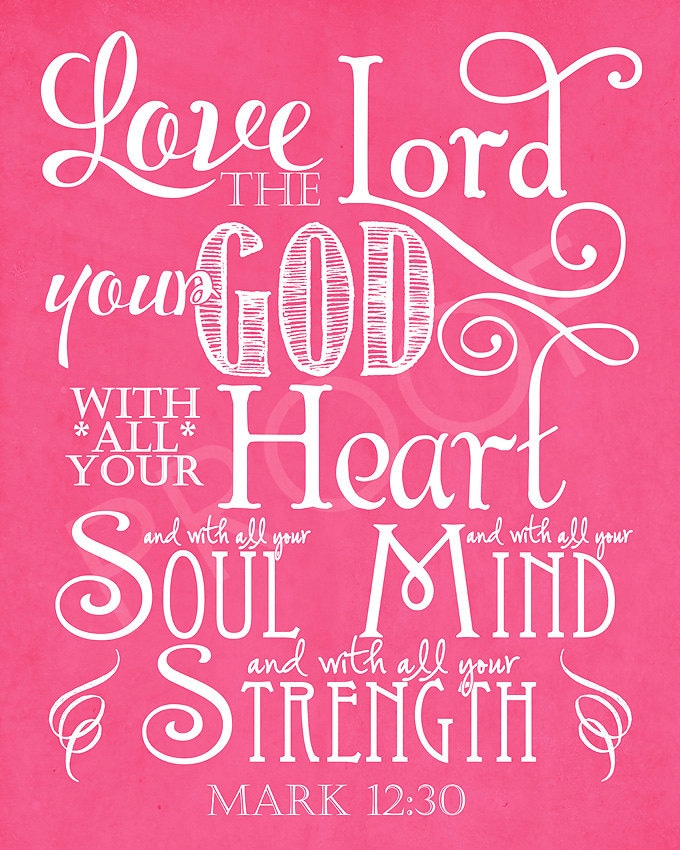 Love THE Lord
your GOD
WITH *ALL* YOUR Heart
and with all your SOUL
and with all your MIND
and with all your STRENGTH
MARK 12:30
PROOF